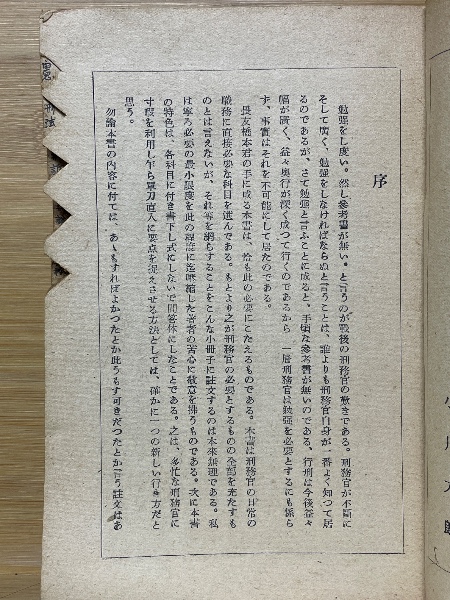 序
勉强をし度い。然し參考書が無い。と言うのが戰後の刑務官の歎きである。刑務官が不斷に
そして廣く、勉强をしなければならぬと言うことは、誰よりも刑務官自身が一番よく知つて居
るのであるが、さて勉强と言ふことに成ると、手頃な參考書が無いのである、行刑は今後益々
幅が廣く、益々奧行が深く成つて行くのであるから 一層刑務官は勉强を必要とするにも係ら
ず、事實はそれを不可能にして居たのである。
長友橋本君の手に成る本書は、恰も此の必要にこたえるものである。本書は刑務官の日常の
職務に直接必要な科目を選んである。もとより之が刑務官の必要とするものの全部を充たすも
のとは言えないが、それ等を網らすることをこんな小册子に註文するのは本來無理である。私
は寧ろ必要の最小限度を此の程度に迄壓縮した著者の苦心に敬意を拂うものである。次に本書
の特色は、各科目に付き書下し式にしないで問答体にしたことである。之は、多忙な刑務官に
寸暇を利用し乍ら單刀直入に要点を捉えさせる方法としては、確かに一つの新しい行き方だと
思う。
勿論本書の内容に付ては、あゝもすればよかつたとか此うもす可きだつたとか言う註文はあ
刑法